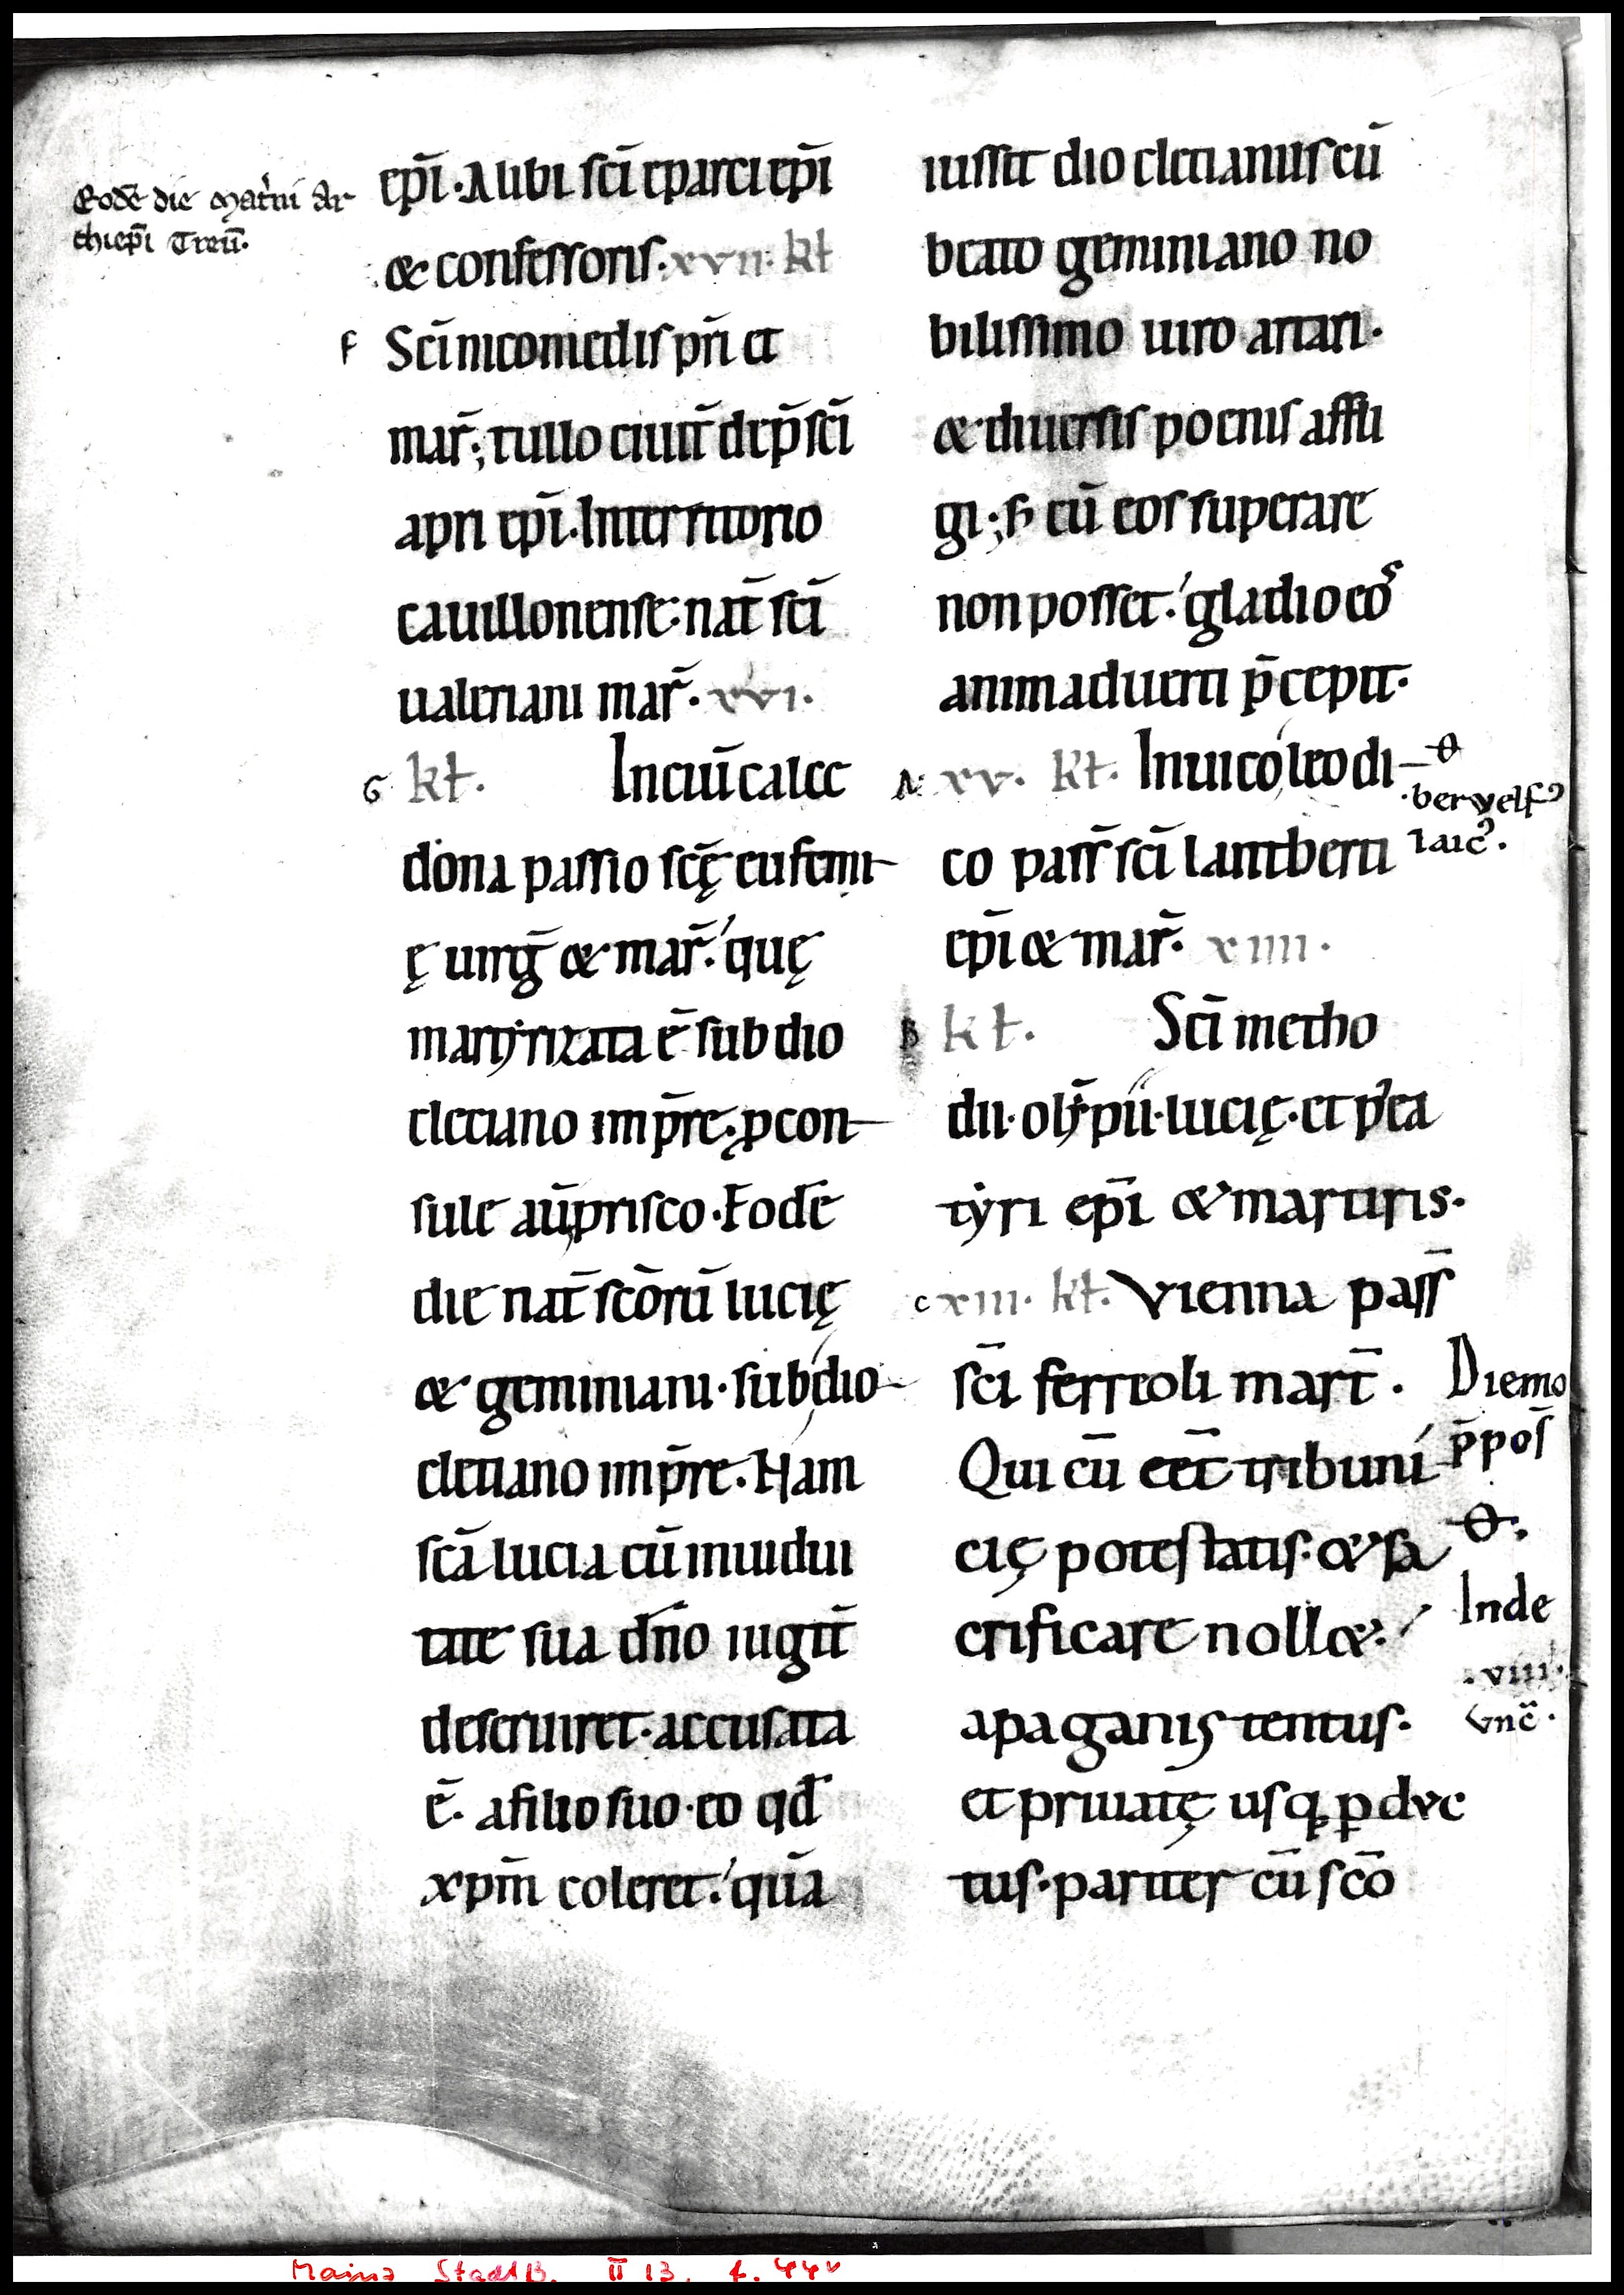 Eodē die Mat'ni Ar
chiep̄i Treū.
ep̄i. Alibi sc̄i eparci ep̄i
& confessoris. xvii. kł
F Sc̄i nicomedis pr̄i et
mar̄; tullo ciuit̄ dep̄ sc̄i
apri ep̄i. Interritorio
cauillonense. nat̄ sc̄i
ualeriani mar̄. xvi.
G kł. Inciuī calce
dona passio sc̄ę eufemi
ę uirḡ & mar̄. quę
martyrizata ē sub dio
cleciano imp̄re. ꝓcon
sule aūprisco. Eodē
die nat̄ sc̄orū lucię
& geminiani. sub dio
cletiano imp̄re. Nam
sc̄a lucia cū inuidui
tate sua dn̄o iugit̄
deseruiret. accusata
ē. afilio suo. eo qd̄
xpm̄ coleret. quā
iussit dio cletianus cū
beato geminiano no
bilissimo uiro artari.
& diuersis poenis affli
gi; sꝫ cū eos superare
non posset. gladio eos
animaduerti p̄cepit.
A xv. kł. Inuico leodi
co pass̄ sc̄i lantberti
ep̄i & mar̄. xiiii.
B kł. Sc̄i metho
dii. olȳpii. lucię. et p'ca
tyri ep̄i & martiris.
c xiii. kł. Vienna pass̄
sc̄i ferrioli mart̄.
Qui cū eēt tribuni
cię potestatis. & sa
crificare noll&.
apaganis tentus.
et priuatę usqꝫ ꝑdvc
tus. pariter cū sc̄o
θ
.berwelfꝰ
laicꝰ.
Diemo
p̄pos̄
θ.
Inde
.viii.
vnc̄.
Mainz StadtB. II 13. f. 44v